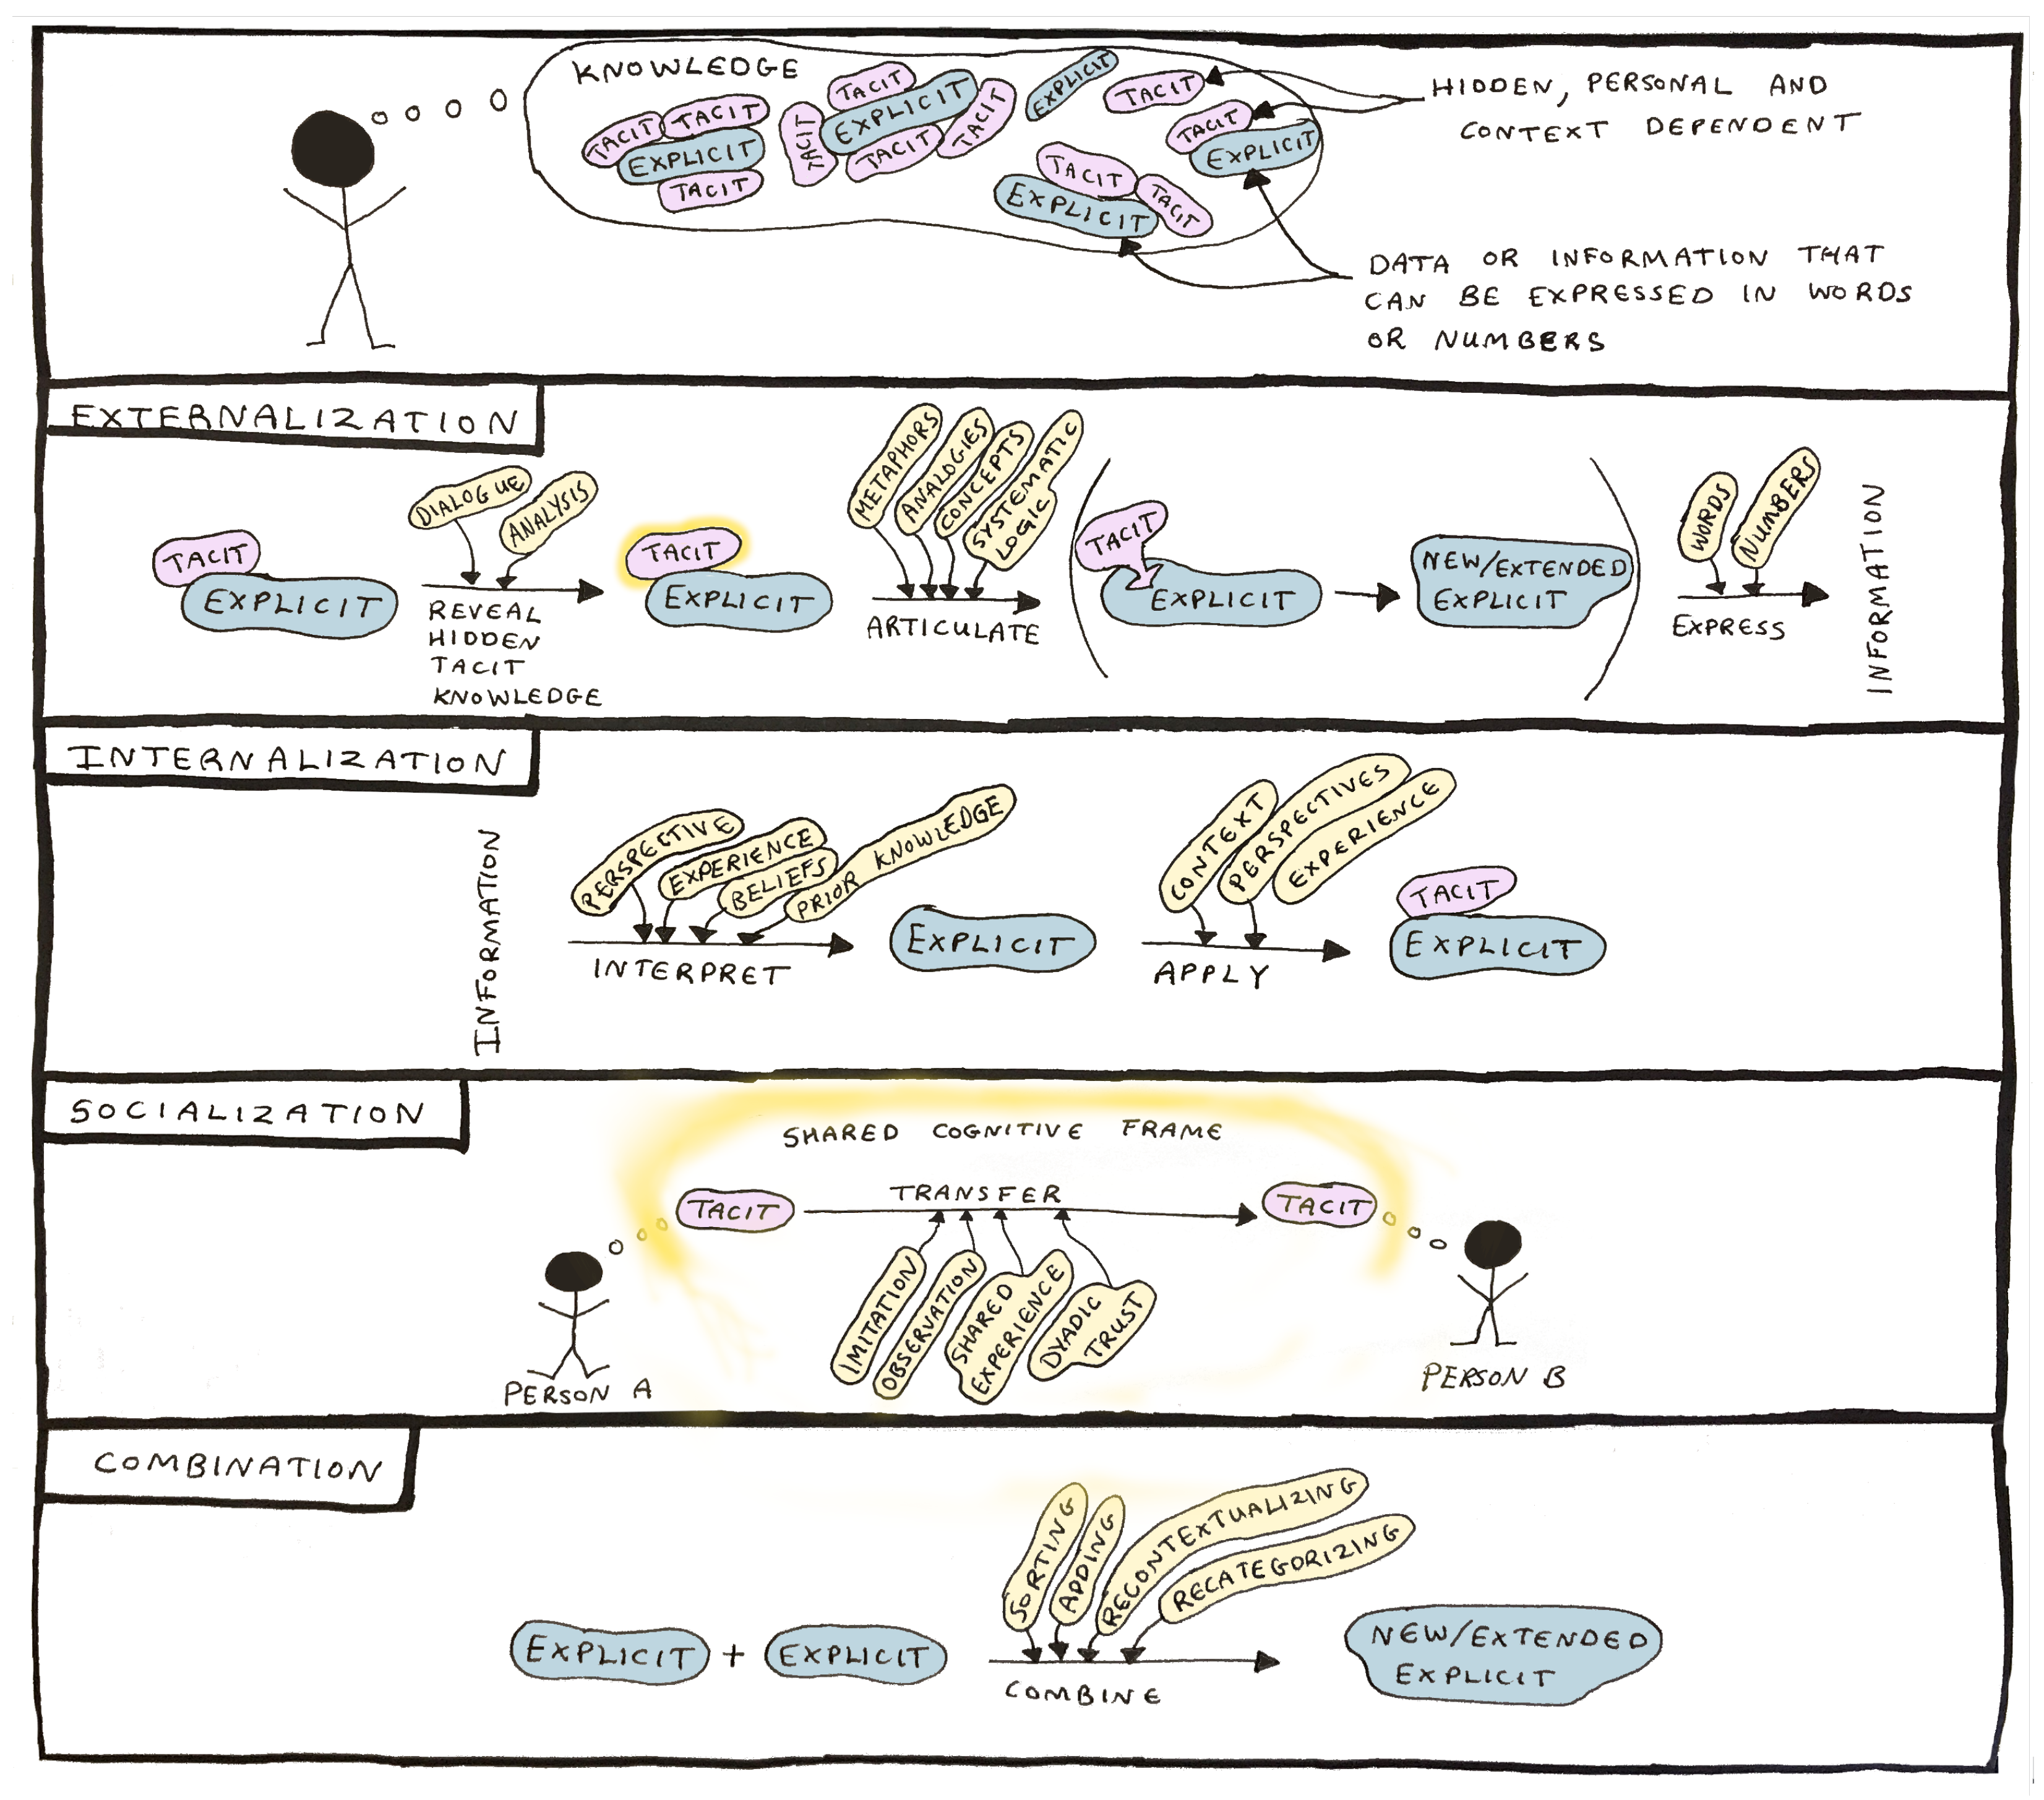 KNOWLEDGE
TACIT
TACIT
EXPLICIT
TACIT
TACIT
TACIT
EXPLICIT
TACIT
TACIT
EXPLICIT
TACIT
TACIT
EXPLICIT
TACIT
EXPLICIT
TACIT
HIDDEN, PERSONAL AND
CONTEXT DEPENDENT
DATA OR INFORMATION THAT
CAN BE EXPRESSED IN WORDS
OR NUMBERS
EXTERNALIZATION
TACIT
EXPLICIT
DIALOGUE
ANALYSIS
REVEAL
HIDDEN
TACIT
KNOWLEDGE
TACIT
EXPLICIT
METAPHORS
ANALOGIES
CONCEPTS
SYSTEMATIC
LOGIC
ARTICULATE
TACIT
EXPLICIT
NEW/EXTENDED
EXPLICIT
WORDS
NUMBERS
EXPRESS
INFORMATION
INTERNALIZATION
INFORMATION
PERSPECTIVE
EXPERIENCE
BELIEFS
PRIOR KNOWLEDGE
INTERPRET
EXPLICIT
CONTEXT
PERSPECTIVES
EXPERIENCE
APPLY
TACIT
EXPLICIT
SOCIALIZATION
SHARED COGNITIVE FRAME
TACIT
TRANSFER
TACIT
IMITATION
OBSERVATION
SHARED
EXPERIENCE
DYADIC
TRUST
PERSON A
PERSON B
COMBINATION
SORTING
ADDING
RECONTEXTUALIZING
RECATEGORIZING
EXPLICIT + EXPLICIT
COMBINE
NEW/EXTENDED
EXPLICIT